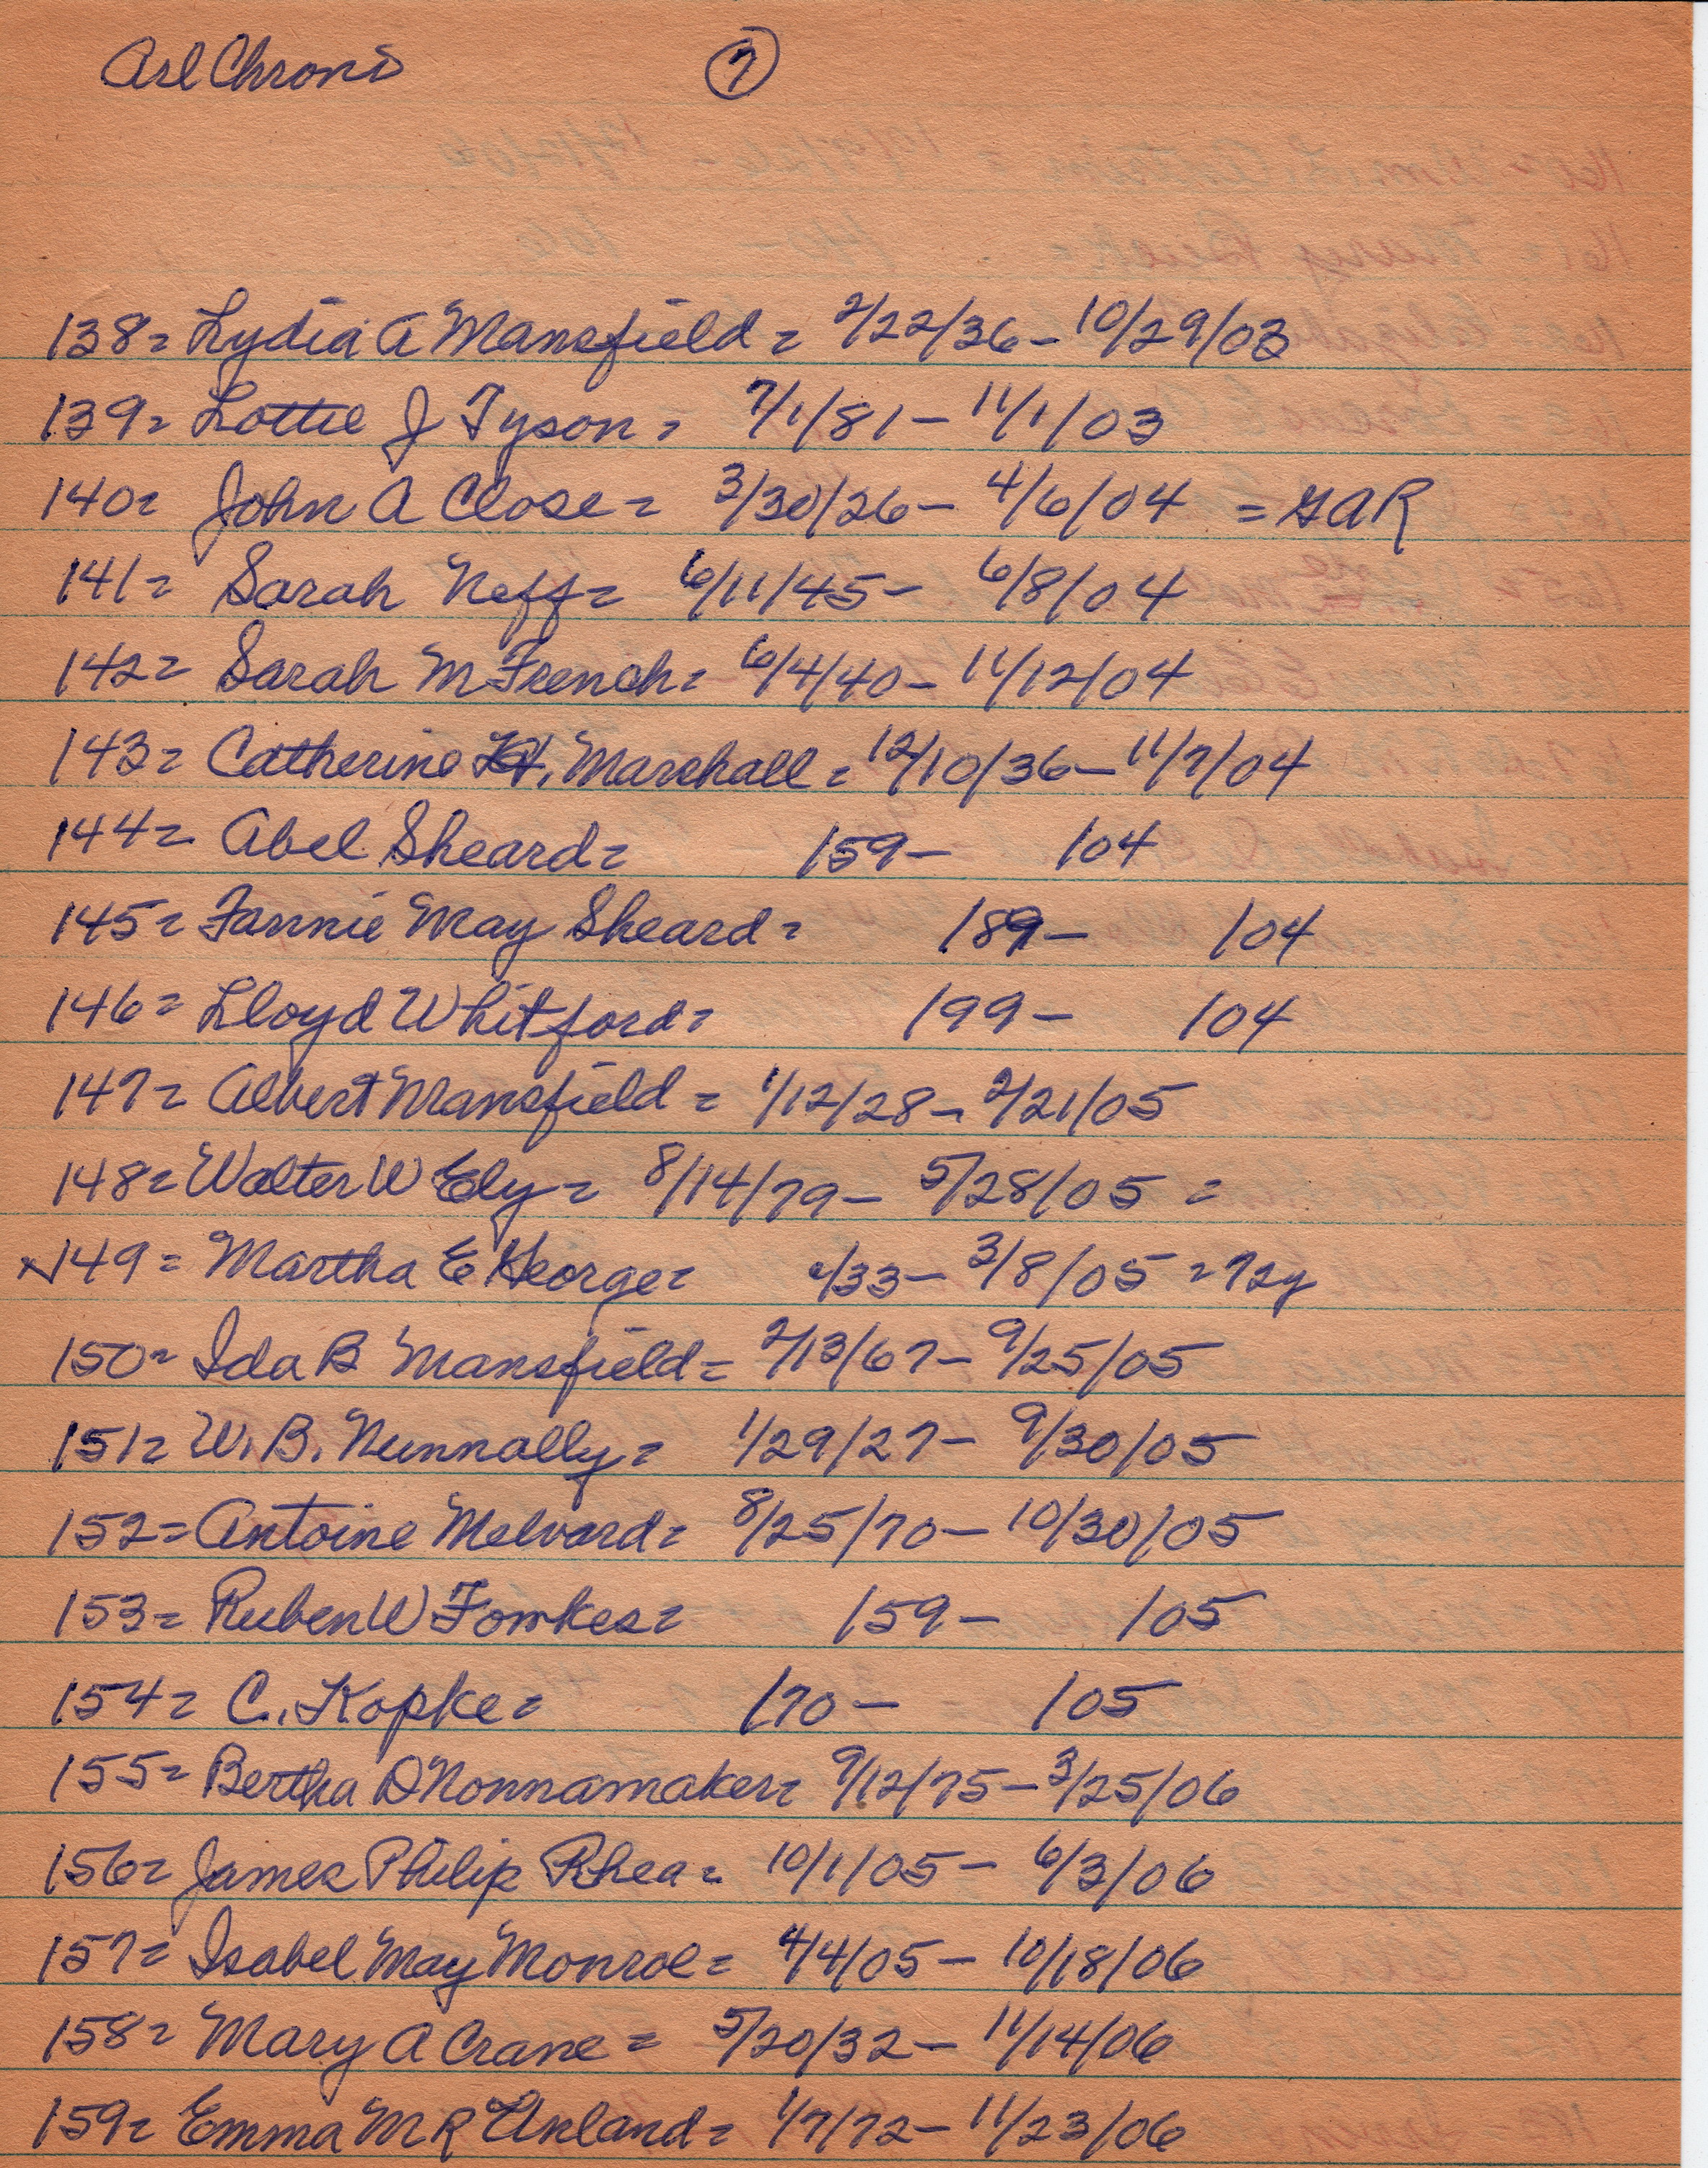 Arl Chrono 7
138= Lydia A Mansfield = 2/22/36 - 10/29/03
139= Lottie J Tyson = 7/1/81 - 11/1/03
140= John A Close = 3/30/26 - 4/6/04 = GAR
141= Sarah Neff = 6/11/45 - 6/8/04
142= Sarah M French = 6/4/40 - 11/12/04
143= Catherine H. Marshall = 12/10/36 - 11/7/04
144= Abel Sheard = /59 - /04
145= Fannie May Sheard = /89 - /04
146= Lloyd Whitford = /99 - /04
147= Albert Mansfield = 1/12/28 - 2/21/05
148= Walter W Ely = 8/14/79 - 5/28/05 =
149= Martha E George = /33 - 3/8/05 = 72y
150= Ida B Mansfield = 2/13/67 - 9/25/05
151= W. B. Nunnally = 1/29/27 - 9/30/05
152= Antoine Melvard = 8/25/70 - 10/30/05
153= Ruben W Fowkes = /59 - /05
154= C. Kopke = /70 - /05
155= Bertha D Nonnamaker = 9/12/75 - 3/25/06
156= James Philip Rhea = 10/1/05 - 6/3/06
157= Isabel May Monroe = 4/4/05 - 10/18/06
158= Mary A Crane = 5/20/32 - 11/14/06
159= Emma M R Unland = 1/7/72 - 11/23/06